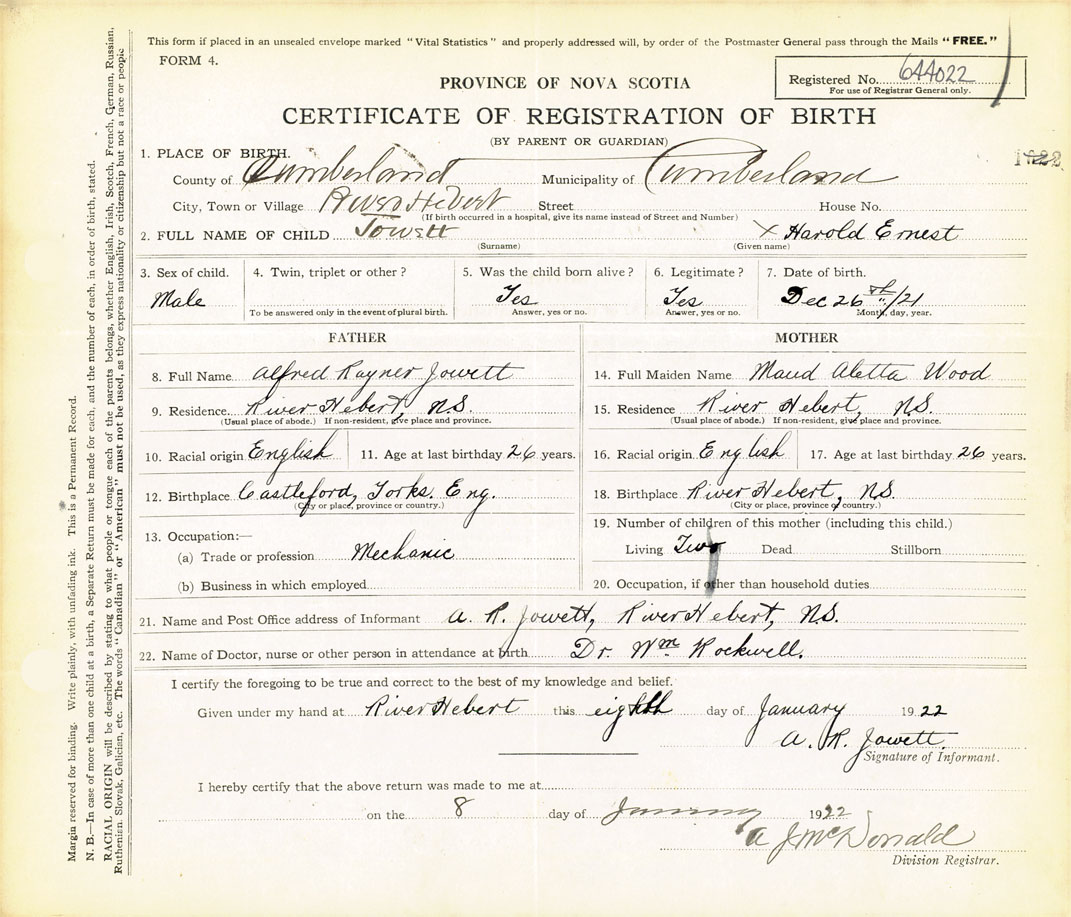 This form if placed in an unsealed envelope marked "Vital Statistics" and properly addressed will, by order of the Postmaster General pass through the Mails "FREE."
FORM 4.
Registered No. 644022
For use of Registrar General only.
PROVINCE OF NOVA SCOTIA
CERTIFICATE OF REGISTRATION OF BIRTH
(BY PARENT OR GUARDIAN)
1922
1. PLACE OF BIRTH.
County of Cumberland Municipality of Cumberland
City, Town or Village River Hebert Street House No.
(If birth occurred in a hospital, give its name instead of Street and Number)
2. FULL NAME OF CHILD Jowett x Harold Ernest
(Surname) (Given name)
3. Sex of child. 4. Twin, triplet or other? 5. Was the child born alive? 6. Legitimate? 7. Date of birth.
Male Yes Yes Dec 26th/21
To be answered only in the event of plural birth. Answer, yes or no. Answer, yes or no. Month, day, year.
FATHER MOTHER
8. Full Name Alfred Rayner Jowett 14. Full Maiden Name Maud Aletta Wood
9. Residence. River Hebert, N.S. 15. Residence River Hebert, N.S.
(Usual place of abode.) If non-resident, give place and province. (Usual place of abode.) If non-resident, give place and province.
10. Racial origin English 11. Age at last birthday 26 years. 16. Racial origin English 17. Age at last birthday 26 years.
12. Birthplace Castleford, Yorks. Eng. 18. Birthplace River Hebert, N.S.
(City or place, province or country.) (City or place, province or country.)
13. Occupation:— 19. Number of children of this mother (including this child.)
(a) Trade or profession Mechanic Living Two Dead Stillborn
(b) Business in which employed 20. Occupation, if other than household duties
21. Name and Post Office address of Informant A. R. Jowett, River Hebert, N.S.
22. Name of Doctor, nurse or other person in attendance at birth Dr. Wm Rockwell.
I certify the foregoing to be true and correct to the best of my knowledge and belief.
Given under my hand at River Hebert this eighth day of January 1922
A. R. Jowett.
Signature of Informant.
I hereby certify that the above return was made to me at
on the 8 day of January 1922
A J McDonald
Division Registrar.
Margin reserved for binding. Write plainly, with unfading ink. This is a Permanent Record.
N. B.—In case of more than one child at a birth, a Separate Return must be made for each, and the number of each, in order of birth, stated.
RACIAL ORIGIN will be described by stating to what people or tongue each of the parents belongs, whether English, Irish, Scotch, French, German, Russian,
Ruthenian, Slovak, Galician, etc. The words "Canadian" or "American" must not be used, as they express nationality or citizenship but not a race or people